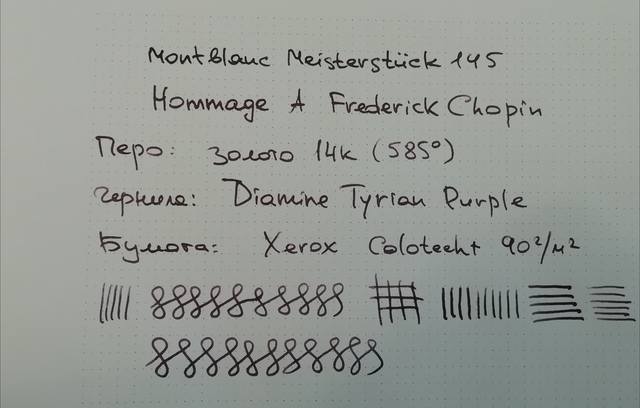 Montblanc Meisterstück 145
Hommage A Frederick Chopin
Перо: золото 14к (585°)
Чернила: Diamine Tyrian Purple
Бумага: Xerox Colotecht 90²/м²